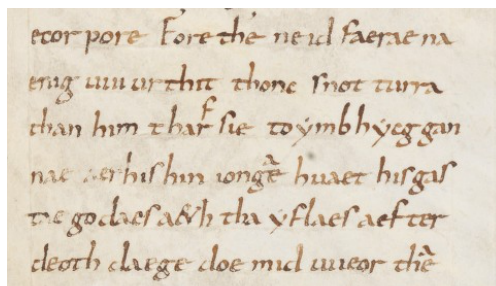 ecorpore Fore the neid faerae na
enig uuiurthit thonc snot turra
than him tharf sie to ymb hycggan
nae aer his hin iongae huaet his gas
tae godaes a&h tha yflaes aefter
deoth daege doemid uueorthae